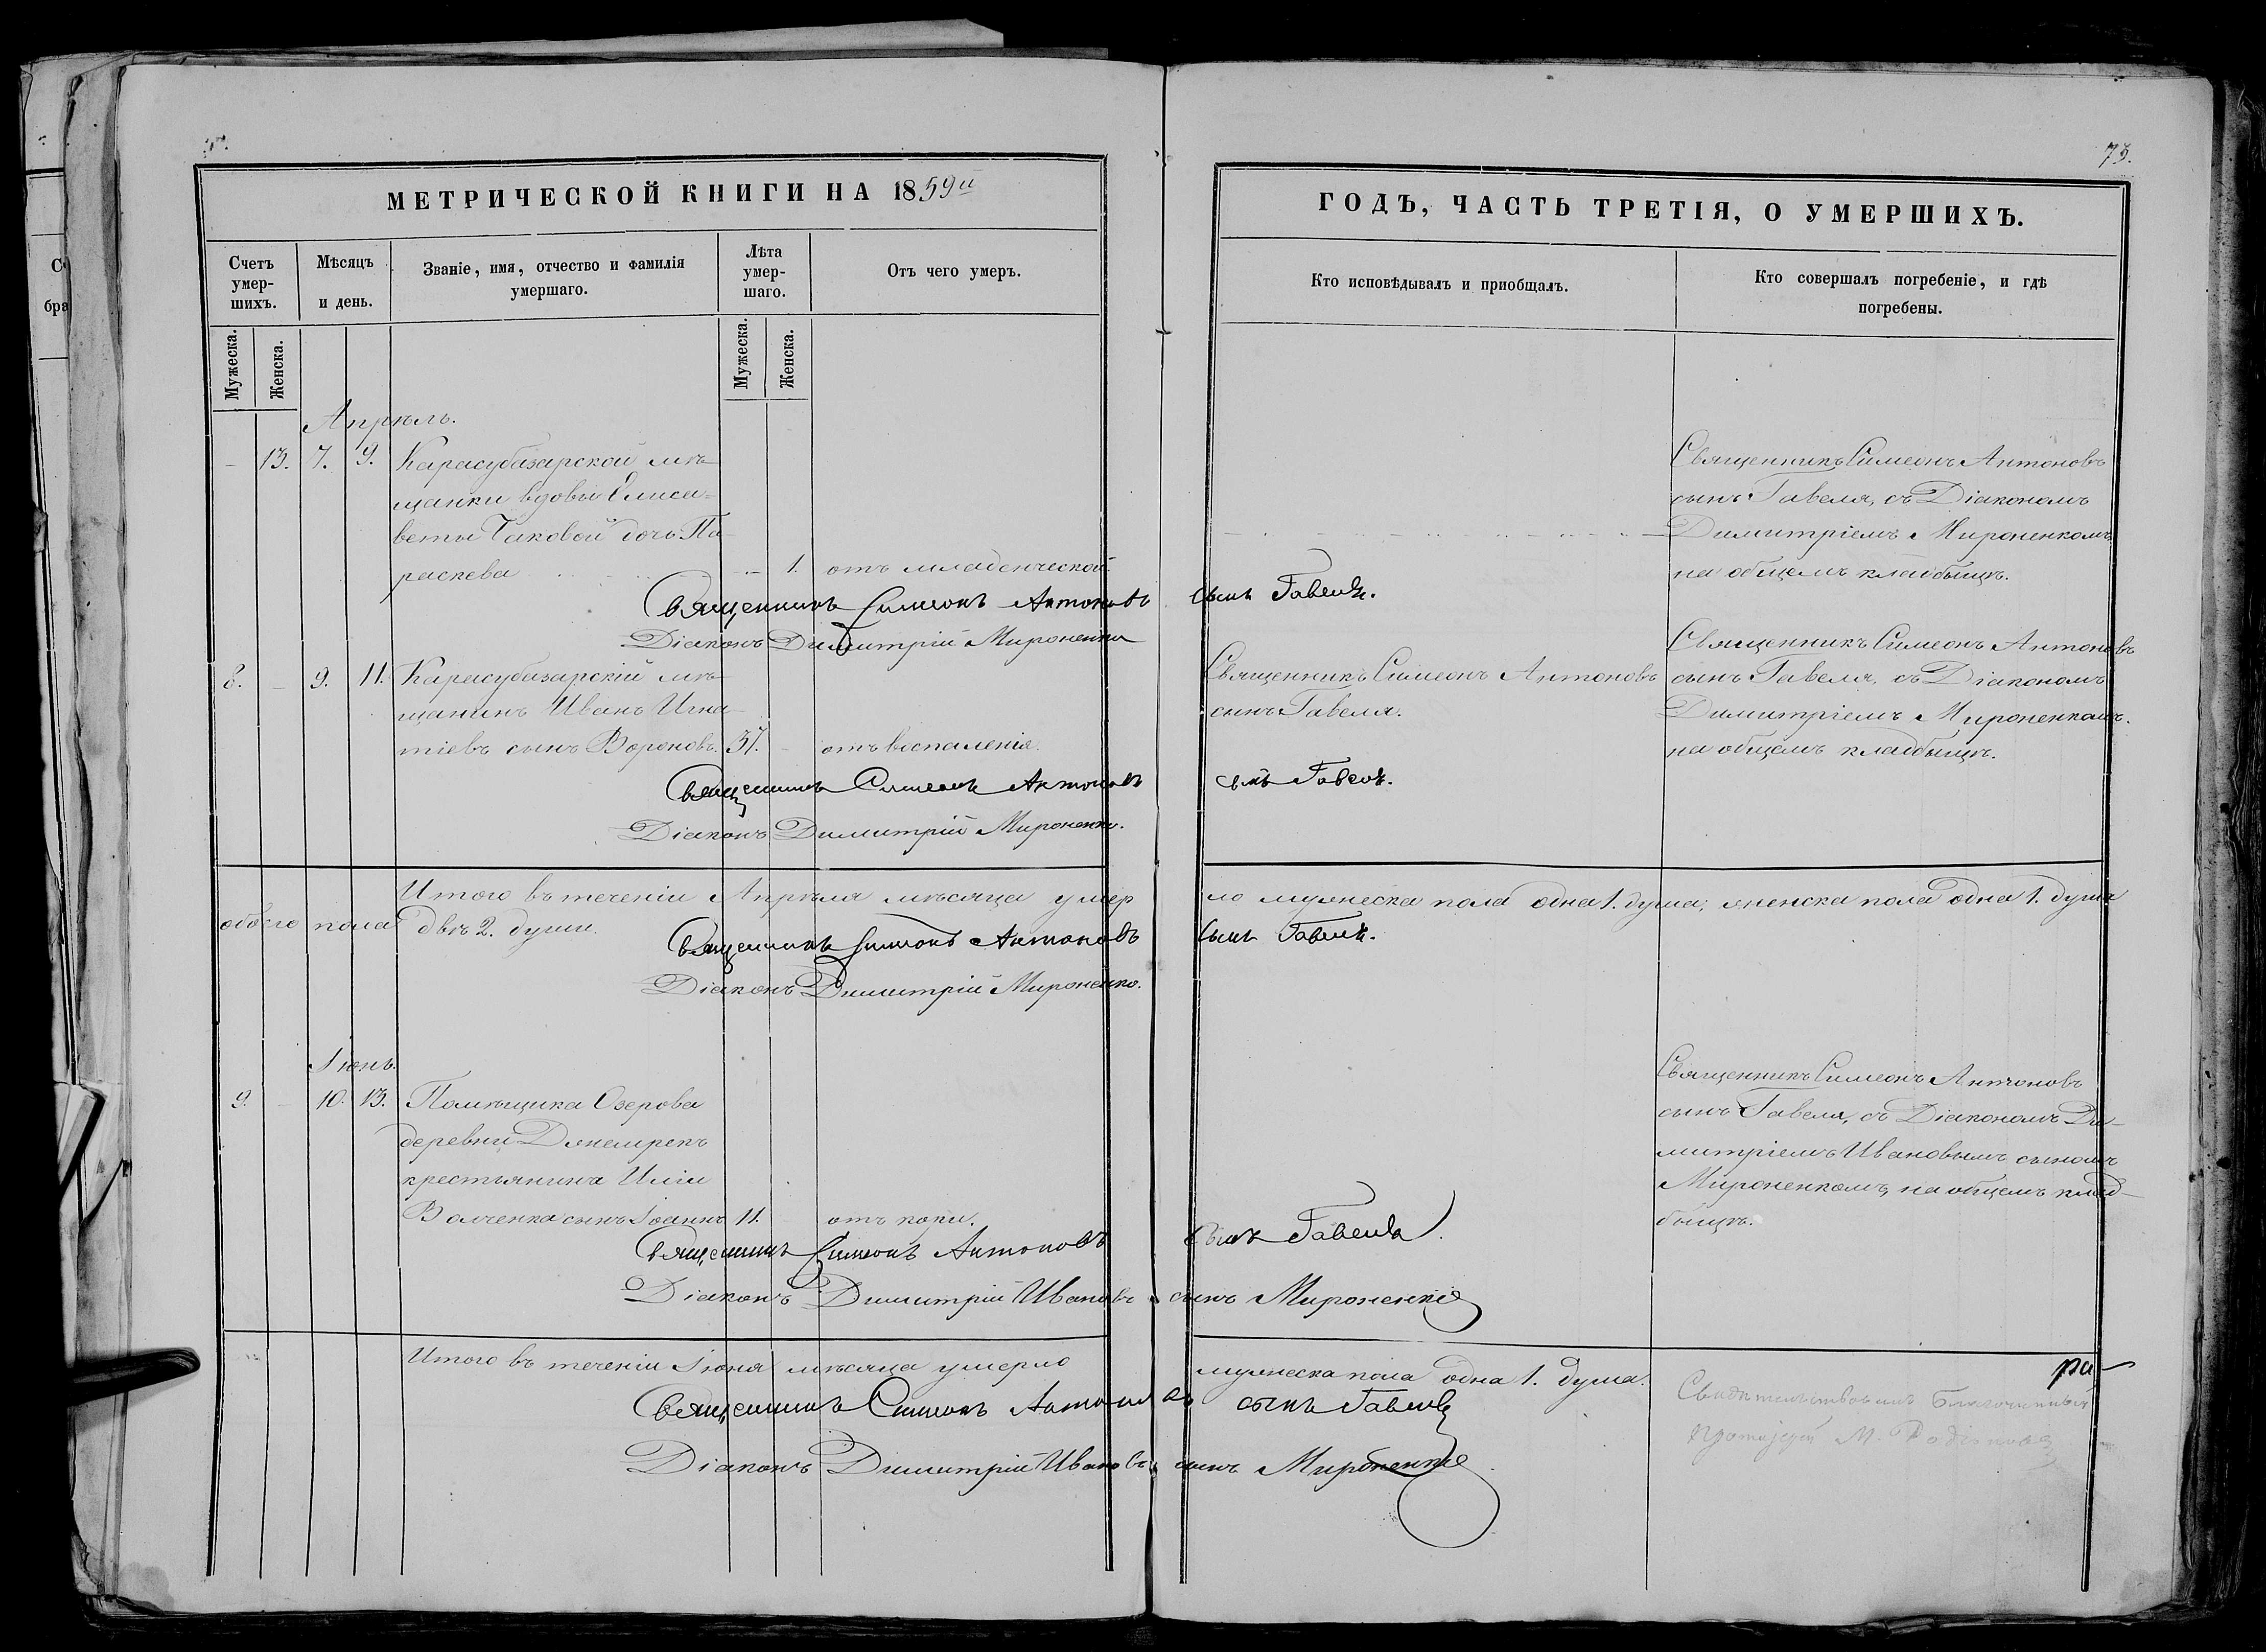 73.
МЕТРИЧЕСКОЙ КНИГИ НА 1859й
ГОДЪ, ЧАСТЬ ТРЕТІЯ, О УМЕРШИХЪ.
Счетъ умер-
шихъ.
Мѣсяцъ
и день.
Званіе, имя, отчество и фамилія
умершаго.
Лѣта
умер-
шаго.
Отъ чего умеръ.
Кто исповѣдывалъ и пріобщалъ.
Кто совершалъ погребеніе, и гдѣ
погребены.
Мужеска.
Женска.
Мужеска.
Женска.
Апрѣль.
13. 7. 9. Карасубазарской мѣ-
щанки вдовы Елиса-
веты Чаковой дочь Па-
раскева 1. отъ младенческой
Священникъ Симеонъ Антоновъ
сынъ Гавеля, съ Діакономъ
Димитріемъ Мироненкомъ,
на общемъ кладбищѣ.
Священникъ Симеонъ Антоновъ сынъ Гавеля.
Діаконъ Димитрій Мироненко
8. – 9. 11. Карасубазарскій мѣ-
щанинъ Иванъ Игна-
тіевъ сынъ Вороновъ. 37. – отъ воспаленія.
Священникъ Симеонъ Антоновъ
сынъ Гавеля.
Священникъ Симеонъ Антоновъ
сынъ Гавеля, съ Діакономъ
Димитріемъ Мироненкомъ.
на общемъ кладбищѣ.
Священникъ Симеонъ Антоновъ сынъ Гавеля.
Діаконъ Димитрій Мироненко.
Итого въ теченіи Апрѣля мѣсяца умерло мужеска пола одна 1. душа, женска пола одна 1. душа
обоего пола двѣ 2. души.
Священникъ Симеонъ Антоновъ сынъ Гавеля.
Діаконъ Димитрій Мироненко.
Іюнь.
9. – 10. 13. Помѣщика Озерова
деревни Джемрекъ
крестьянина Иліи
Волченка сынъ Іоаннъ 11. отъ кори.
Священникъ Симеонъ Антоновъ
сынъ Гавеля, съ Діакономъ Ди-
митріемъ Ивановымъ сыномъ
Мироненкомъ, на общемъ клад-
бищѣ.
Священникъ Симеонъ Антоновъ сынъ Гавеля.
Діаконъ Димитрій Ивановъ сынъ Мироненко
Итого въ теченіи Іюня мѣсяца умерло мужеска пола одна 1. душа.
Священникъ Симеонъ Антоновъ сынъ Гавеля
Діаконъ Димитрій Ивановъ сынъ Мироненко
ра-
Свидѣтельствовалъ Благочинный
Протоіерей М. Родіоновъ